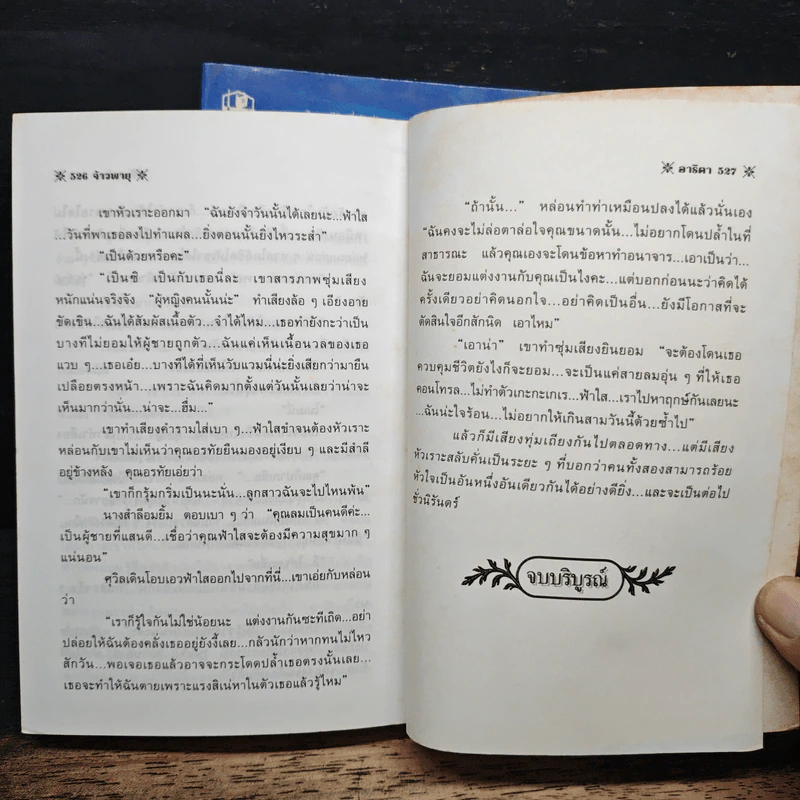 526 จ้าวพายุ
เขาหัวเราะออกมา "ฉันยังจำวันนั้นได้เลยนะ...ฟ้าใส
...วันที่พาเธอลงไปทำแผล...ยิ่งตอนนั้นยิ่งไหวระส่ำ"
"เป็นด้วยหรือคะ"
"เป็นซิ เป็นกับเธอนี่ละ เขาสารภาพซุ่มเสียง
หนักแน่นจริงจัง "ผู้หญิงคนนั้นน่ะ" ทำเสียงล้อ ๆ เอียงอาย
ขัดเขิน...ฉันได้สัมผัสเนื้อตัว...จำได้ไหม...เธอทำยังกะว่าเป็น
บางทีไม่ยอมให้ผู้ชายถูกตัว...ฉันแค่เห็นเนื้อนวลของเธอ
แวบ ๆ...เธอเอ๋ย...บางทีได้ที่เห็นวับแวมนี่น่ะยิ่งเสียกว่ามายืน
เปลือยตรงหน้า...เพราะฉันคิดมากตั้งแต่วันนั้นเลยว่าน่าจะ
เห็นมากกว่านั่น...น่าจะ...ฮึ่ม..."
เขาทำเสียงคำรามใส่เบา ๆ...ฟ้าใสขำจนต้องหัวเราะ
หล่อนกับเขาไม่เห็นว่าคุณอรทัยยืนมองอยู่เงียบ ๆ และมีสำลี
อยู่ข้างหลัง คุณอรทัยเอ่ยว่า
"เขาก็กรุ้มกริ่มเป็นนะนั่น...ลูกสาวฉันจะไปไหนพ้น"
นางสำลีอมยิ้ม ตอบเบา ๆ ว่า "คุณลมเป็นคนดีค่ะ...
เป็นผู้ชายที่แสนดี...เชื่อว่าคุณฟ้าใสจะต้องมีความสุขมาก ๆ
แน่นอน"
ศุวิลเดินโอบเอวฟ้าใสออกไปจากที่นี่...เขาเอ่ยกับหล่อน
ว่า
"เราก็รู้ใจกันไม่ใช่น้อยนะ แต่งงานกันซะทีเถิด...อย่า
ปล่อยให้ฉันต้องคลั่งเธออยู่ยังงี้เลย...กลัวนักว่าหากทนไม่ไหว
สักวัน...พอเจอเธอแล้วอาจจะกระโดดปล้ำเธอตรงนั้นเลย...
เธอจะทำให้ฉันตายเพราะแรงสิเน่หาในตัวเธอแล้วรู้ไหม"
อาริตา 527
"ถ้านั้น..." หล่อนทำท่าเหมือนปลงได้แล้วนั่นเอง
"ฉันคงจะไม่ล่อตาล่อใจคุณขนาดนั้น...ไม่อยากโดนปล้ำในที่
สาธารณะ แล้วคุณเองจะโดนข้อหาทำอนาจาร...เอาเป็นว่า...
ฉันจะยอมแต่งงานกับคุณเป็นไงคะ...แต่บอกก่อนนะว่าคิดได้
ครั้งเดียวอย่าคิดนอกใจ...อย่าคิดเป็นอื่น...ยังมีโอกาสที่จะ
ตัดสินใจอีกสักนิด เอาไหม"
"เอาน่า" เขาทำซุ่มเสียงยินยอม "จะต้องโดนเธอ
ควบคุมชีวิตยังไงก็จะยอม...จะเป็นแค่สายลมอุ่น ๆ ที่ให้เธอ
คอนโทรล...ไม่ทำตัวเกะกะเกเร...ฟ้าใส...เราไปหาฤกษ์กันเลยนะ
...ฉันน่ะใจร้อน...ไม่อยากให้เกินสามวันนี้ด้วยซ้ำไป"
แล้วก็มีเสียงทุ่มเถียงกันไปตลอดทาง...แต่มีเสียง
หัวเราะสลับคั่นเป็นระยะ ๆ ที่บอกว่าคนทั้งสองสามารถร้อย
หัวใจเป็นอันหนึ่งอันเดียวกันได้อย่างดียิ่ง...และจะเป็นต่อไป
ชั่วนิรันดร์
จบบริบูรณ์